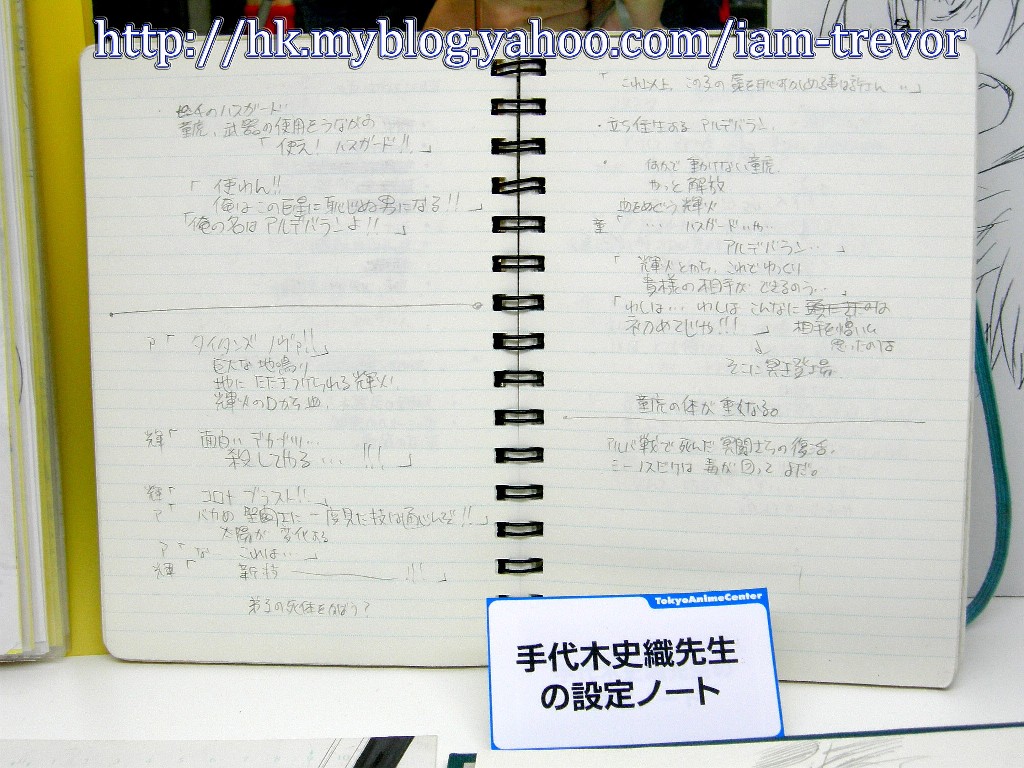 http://hk.myblog.yahoo.com/iam-trevor
ハスガード
童虎、武器の使用をうながす
「使え！ ハスガード!!」
「使わん!!
俺はこの巨星に恥じぬ男になる!!」
「俺の名は アルデバランよ!!」
ア「 タイタンズ ノヴァ!!」
巨大な地鳴り
地にたたきつけられる輝火
輝火の 血。
輝「 面白い デカブツ…
殺してやる … !!!」
輝「 コロナ ブラスト!!」
ア「 バカめ 聖闘士に 一度見た技は通じんぞ!!」
太陽が 変化する
ア「な これは…」
輝「 新技 !!!」
弟子の死体をかばう？
「これ以上、この子の 」
・立ち往生する アルデバラン。
・ 何かで 動けない童虎
やっと 解放
血をぬぐう 輝火
童「 … ハスガード いや…
アルデバラン…」
「 輝火とやら、これでゆっくり
貴様の相手ができるのう…」
「わしは… わしは こんなに のは
初めてじゃ!!!」 相手を憎いと
思ったのは
そこに冥王登場
童虎の体が重くなる。
アルバ戦で死んだ 冥闘士らの復活。
ミーノスだけは 毒が回って まだ。
TokyoAnimeCenter
手代木史織先生
の設定ノート